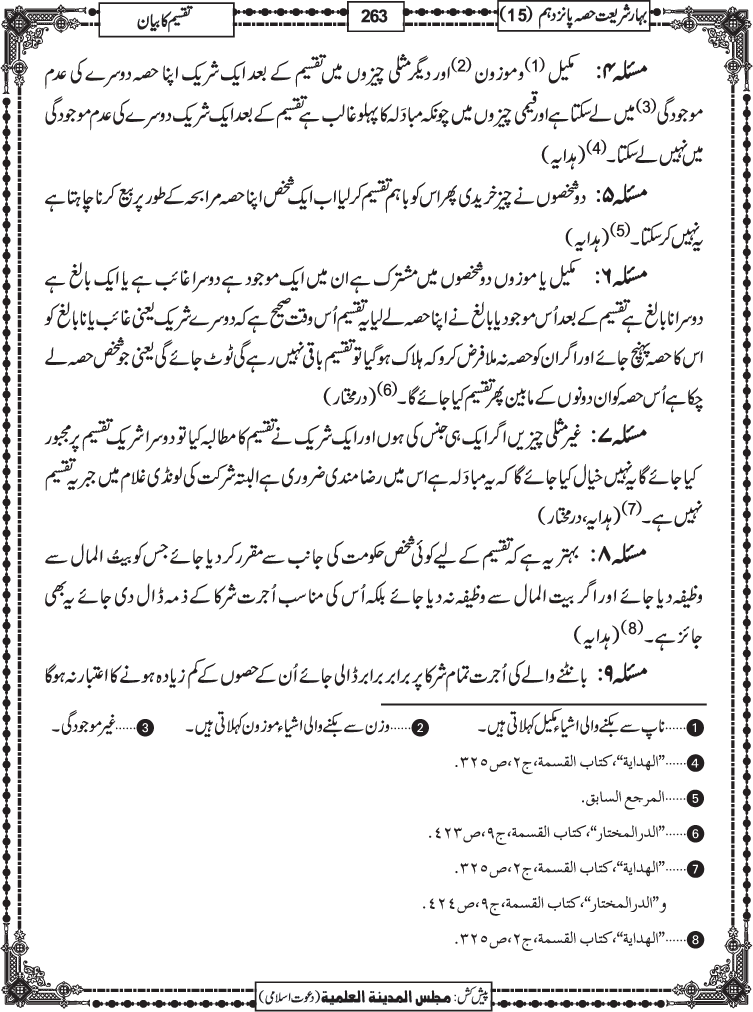 بہارِ شریعت حصہ پانزدہم (15)
263
تقسیم کا بیان
مسئلہ ۴: مکیل (1) و موزون (2) اور دیگر مثلی چیزوں میں تقسیم کے بعد ایک شریک اپنا حصہ دوسرے کی عدم
موجودگی (3) میں لے سکتا ہے اور قیمی چیزوں میں چونکہ مبادَلہ کا پہلو غالب ہے تقسیم کے بعد ایک شریک دوسرے کی عدم موجودگی
میں نہیں لے سکتا۔ (4) (ہدایہ)
مسئلہ ۵: دو شخصوں نے چیز خریدی پھر اس کو باہم تقسیم کرلیا اب ایک شخص اپنا حصہ مرابحہ کے طور پر بیع کرنا چاہتا ہے
یہ نہیں کرسکتا۔ (5) (ہدایہ)
مسئلہ ۶: مکیل یا موزوں دو شخصوں میں مشترک ہے ان میں ایک موجود ہے دوسرا غائب ہے یا ایک بالغ ہے
دوسرا نابالغ ہے تقسیم کے بعد اُس موجود یا بالغ نے اپنا حصہ لے لیا یہ تقسیم اُس وقت صحیح ہے کہ دوسرے شریک یعنی غائب یا نابالغ کو
اس کا حصہ پہنچ جائے اور اگر ان کو حصہ نہ ملا فرض کرو کہ ہلاک ہوگیا تو تقسیم باقی نہیں رہے گی ٹوٹ جائے گی یعنی جو شخص حصہ لے
چکا ہے اُس حصہ کو ان دونوں کے مابین پھر تقسیم کیا جائے گا۔ (6) (درمختار)
مسئلہ ۷: غیر مثلی چیزیں اگر ایک ہی جنس کی ہوں اور ایک شریک نے تقسیم کا مطالبہ کیا تو دوسرا شریک تقسیم پر مجبور
کیا جائے گا یہ نہیں خیال کیا جائے گا کہ یہ مبادَلہ ہے اس میں رضامندی ضروری ہے البتہ شرکت کی لونڈی غلام میں جبریہ تقسیم
نہیں ہے۔ (7) (ہدایہ، درمختار)
مسئلہ ۸: بہتر یہ ہے کہ تقسیم کے لیے کوئی شخص حکومت کی جانب سے مقرر کردیا جائے جس کو بیتُ المال سے
وظیفہ دیا جائے اور اگر بیت المال سے وظیفہ نہ دیا جائے بلکہ اُس کی مناسب اُجرت شرکا کے ذمہ ڈال دی جائے یہ بھی
جائز ہے۔ (8) (ہدایہ)
مسئلہ ۹: بانٹنے والے کی اُجرت تمام شرکا پر برابر برابر ڈالی جائے اُن کے حصوں کے کم زیادہ ہونے کا اعتبار نہ ہوگا
1 ......ناپ سے بکنے والی اشیاء مکیل کہلاتی ہیں۔ 2 ......وزن سے بکنے والی اشیاء موزون کہلاتی ہیں۔ 3 ......غیر موجودگی۔
4 ......”الهداية“، كتاب القسمة، ج۲، ص۳۲۵.
5 ......المرجع السابق.
6 ......”الدرالمختار“، كتاب القسمة، ج۹، ص۴۲۳.
7 ......”الهداية“، كتاب القسمة، ج۲، ص۳۲۵.
و ”الدرالمختار“، كتاب القسمة، ج۹، ص۴۲۴.
8 ......”الهداية“، كتاب القسمة، ج۲، ص۳۲۵.
پیش کش: مجلس المدینة العلمیة (دعوت اسلامی)